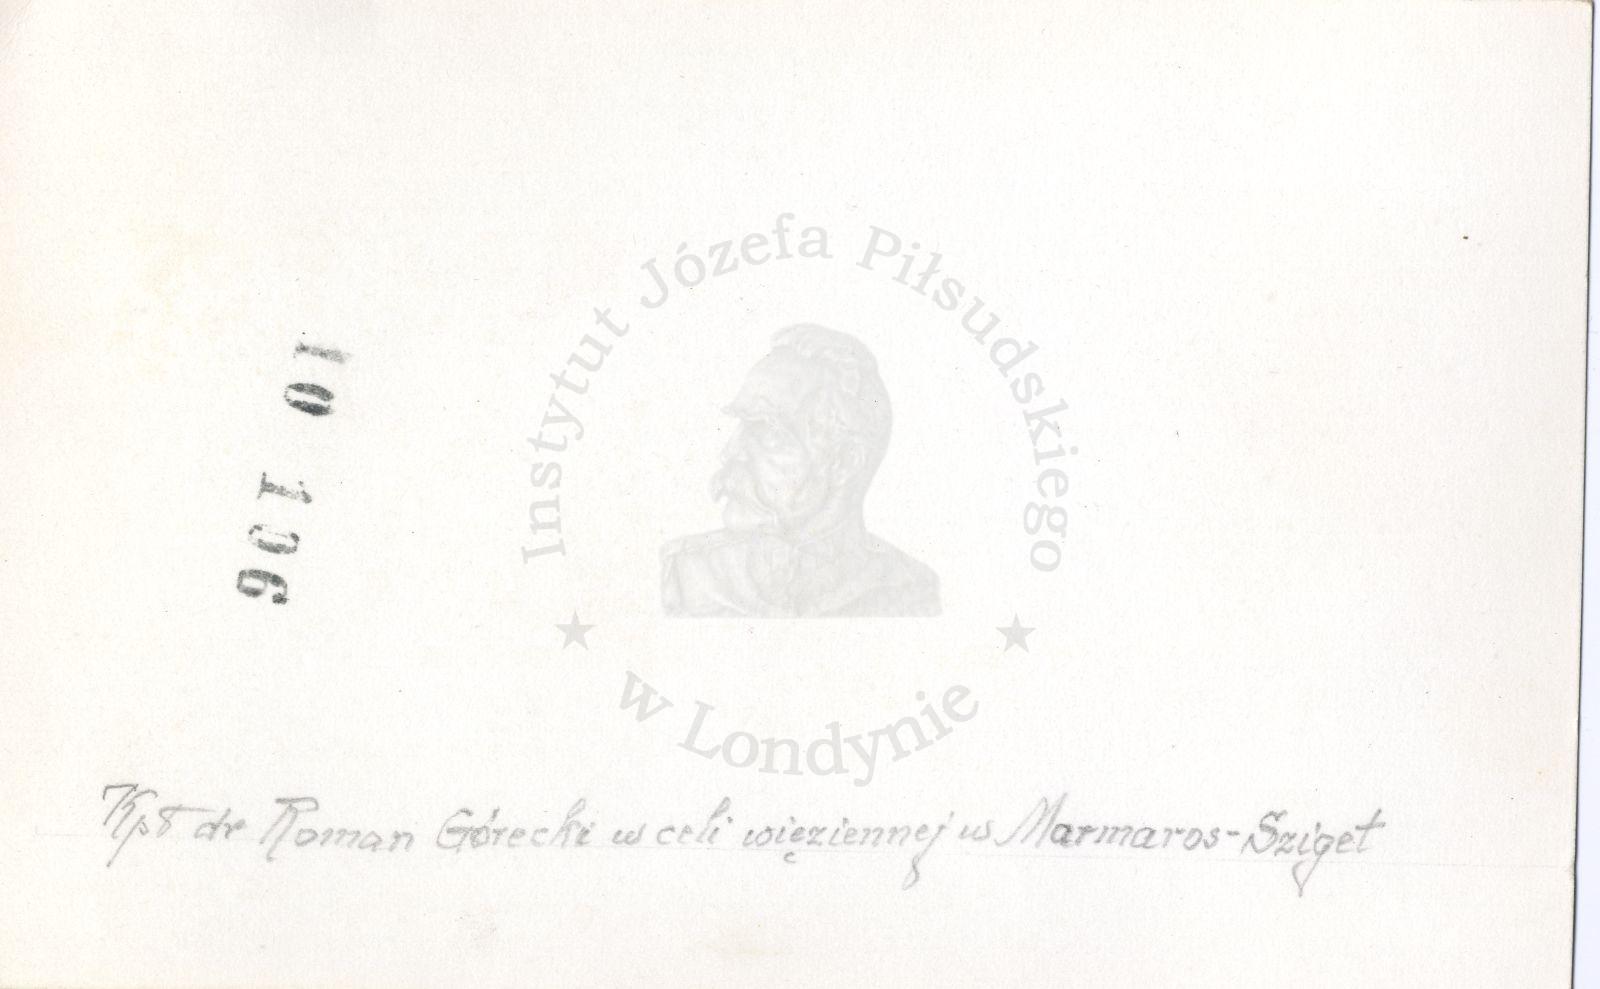 Instytut Józefa Piłsudskiego
w Londynie
10 106
Kpt dr Roman Górecki w celi więziennej w Marmaros-Sziget